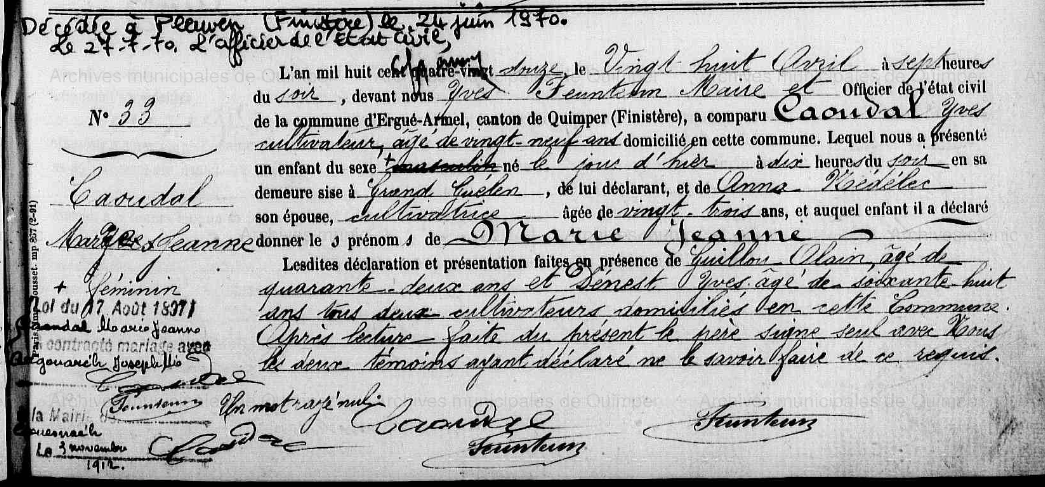 Décédée à Pleuven (Finistère) le 24 juin 1970.
Le 27-7-70. L'officier de l'Etat Civil,
N° 33
Caoudal
Marie Jeanne
+ féminin
Loi du 17 Août 1897
Caoudal Marie Jeanne
a contracté mariage avec
Joseph Mie
Caoudal
Feunteun
à la Mairie de
le 3 novembre
1912.
L'an mil huit cent quatre-vingt douze, le Vingt huit Avril à sept heures
du soir, devant nous Yves Feunteun Maire et Officier de l'état civil
de la commune d'Ergué-Armel, canton de Quimper (Finistère), a comparu Caoudal Yves
cultivateur, âgé de vingt-neuf ans domicilié en cette commune. Lequel nous a présenté
un enfant du sexe + masculin né le jour d'hier à dix heures du soir en sa
demeure sise à Grand Guelen, de lui déclarant, et de Anna Nédélec
son épouse, cultivatrice âgée de vingt-trois ans, et auquel enfant il a déclaré
donner le s prénom s de Marie Jeanne
Lesdites déclaration et présentation faites en présence de Guillou Alain, âgé de
quarante-deux ans et Dénest Yves âgé de soixante huit
ans tous deux cultivateurs domiciliés en cette Commune.
Après lecture faite du présent le père signe seul avec Nous
les deux témoins ayant déclaré ne le savoir faire de ce requis.
Un mot rayé nul
Caoudal
Caoudal
Feunteun
Feunteun
Archives municipales de Quimper